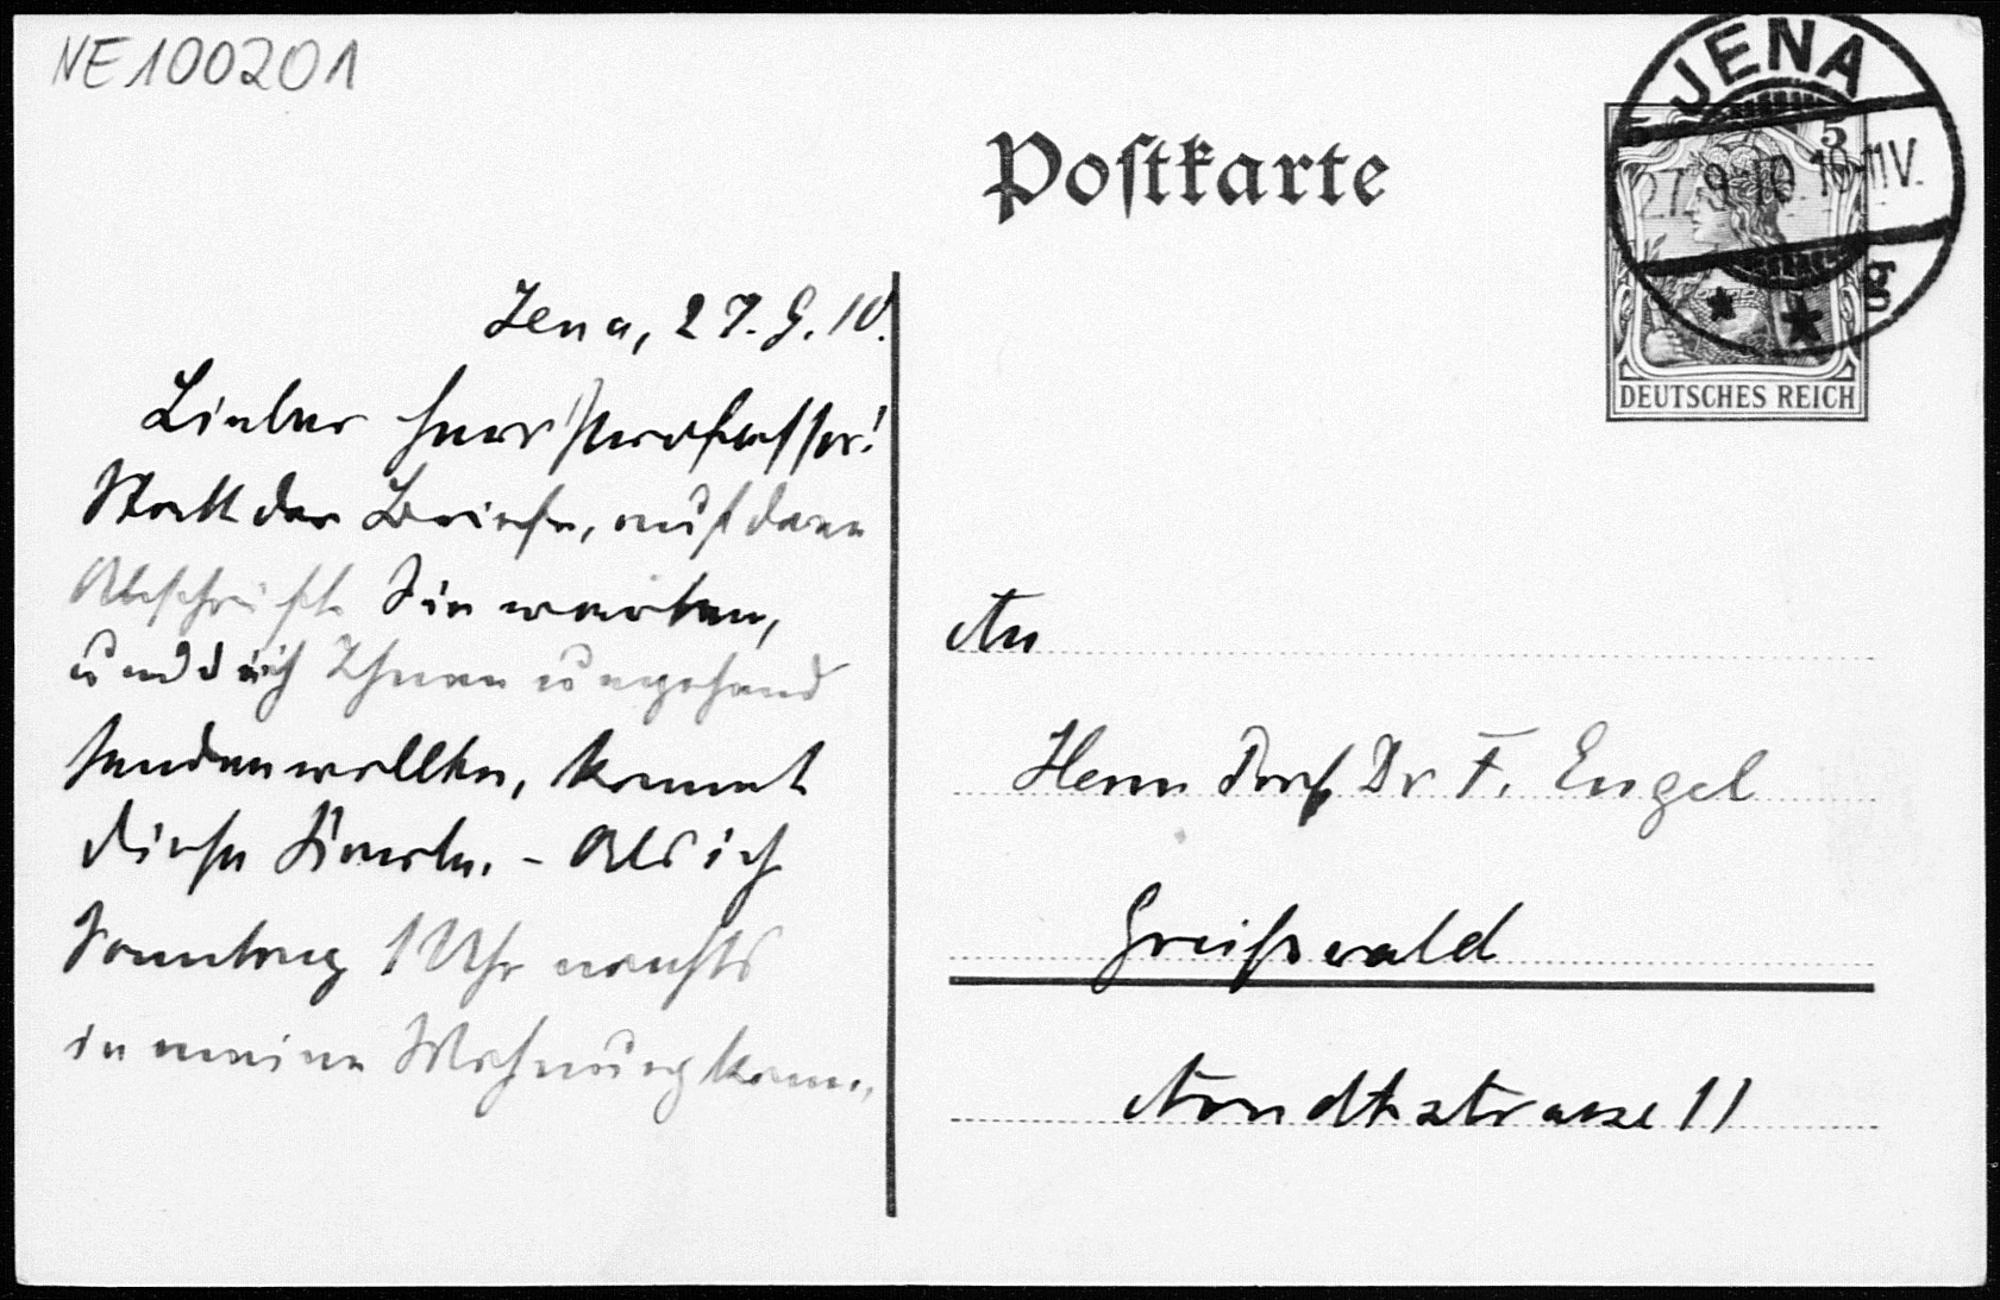 NE100201
Postkarte
JENA
27. 9. 10 10-11V.
g
5
DEUTSCHES REICH
Jena, 27. 9. 10.
Lieber Herr Professor!
Statt der Briefe, auf deren
Abschrift Sie warten,
und die ich Ihnen umgehend
senden wollte, kommt
diese Karte. - Als ich
Sonntag 1 Uhr nachts
in meine Wohnung kam,
An
Herrn Prof Dr F. Engel
Greifswald
Arndtstrasse 11